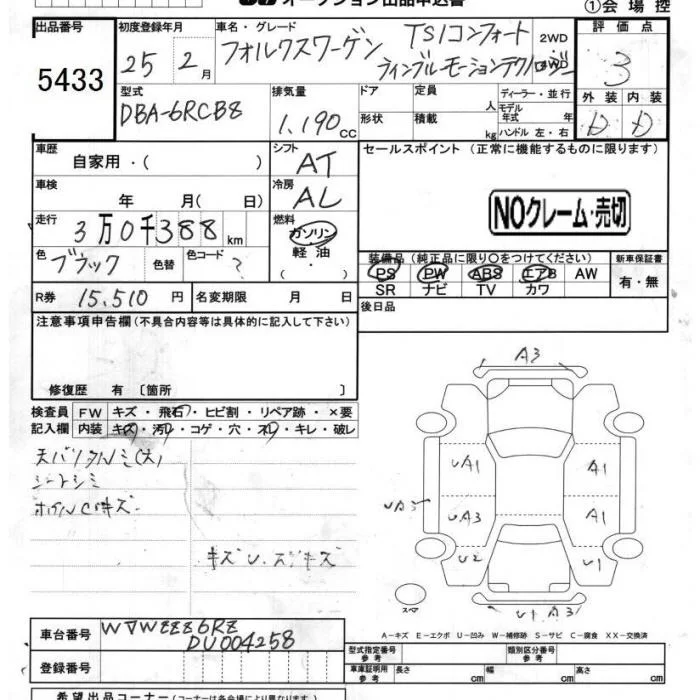 オークション出品申込書 ①会場控
出品番号 初度登録年月 車名・グレード 評価点
5433 25 2月 フォルクスワーゲン TSIコンフォート 2WD 3
ラインブルーモーションテクノロジー
型式 排気量 ドア 定員 ディーラー・並行 外装 内装
DBA-6RCBZ 1,190cc 人 モデル年式 年 D D
形状 積載 kg ハンドル 左・右
車歴 自家用・( ) シフト AT セールスポイント (正常に機能するものに限ります)
車検 年 月( 日) 冷房 AL NOクレーム・売切
走行 3万0千388km 燃料 ガソリン
軽油
色 ブラック 色替 色コード ? ・( )
装備品 (純正品に限り〇をつけてください) 新車保証書
PS PW ABS エアB AW 有・無
SR ナビ TV カワ
R券 15,510円 名変期限 月 日 後日品
注意事項申告欄 (不具合内容等は具体的に記入して下さい)
修復歴 有 〔箇所 〕
検査員 FW キズ・飛石・ヒビ割・リペア跡・×要
記入欄 内装 キズ・汚れ・コゲ・穴・スレ・キレ・破レ
天バリタルミ(大)
シートシミ
ホイルC用キズ
キズU.スリキズ
A3
UA1 A1
UA3 UA3 A1
U2 U1
スペア U1 A3
A-キズ E-エクボ U-凹み W-補修跡 S-サビ C-腐食 XX-交換済
車台番号 WVWZZZ6RZ
DU004258
登録番号
型式指定番号 参考 類別区分番号 参考
車庫証明用 参考 長さ cm 幅 cm 高さ cm
希望出品コーナー (コーナーは各会場により異なります)